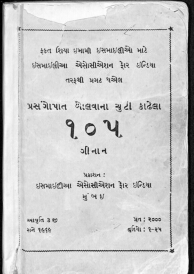 ફક્ત શિયા ઇમામી ઇસમાઇલીઓ માટે
ઇસમાઇલીઆ એસોસીએશન ફોર ઇન્ડિયા
તરફથી પ્રગટ થએલ
પ્રસંગોપાત બોલવાના ચુંટી કાઢેલા
૧૦૫
ગીનાન
પ્રકાશન :
ઇસમાઇલીઆ એસોસીએશન ફોર ઇન્ડિયા
મુંબઇ
આવૃત્તિ ૩ જી
પ્રત : ૨૦૦૦
સને ૧૯૬૯